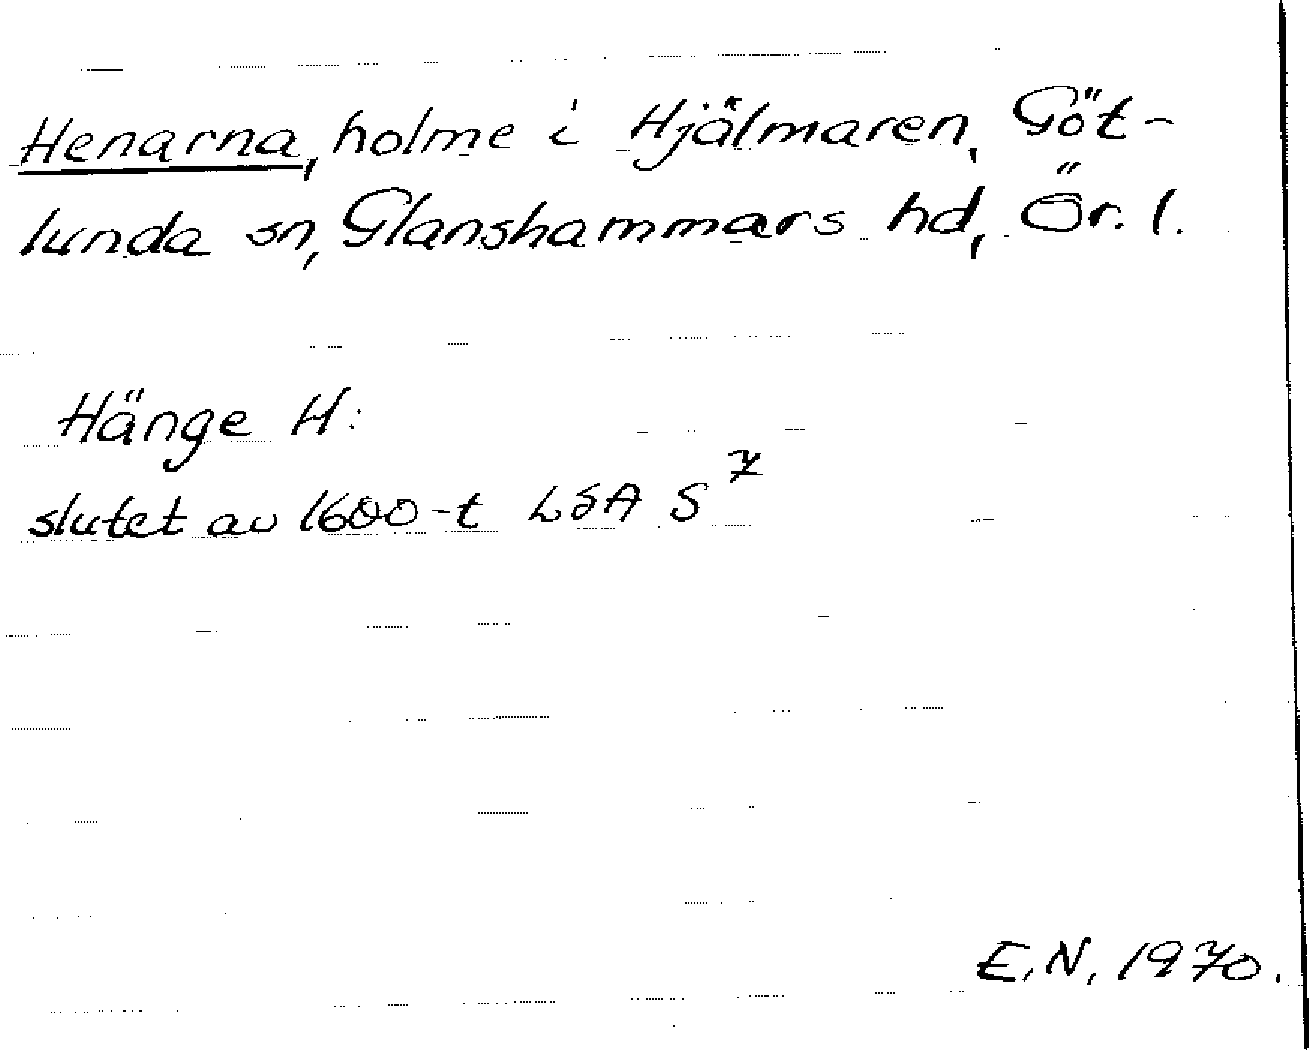 Henarna, holme i Hjälmaren, Göt-
lunda sn, Glanshammars hd, Ör. l.
Hänge H:
slutet av 1600-t LSA S 7
E.N. 1970.